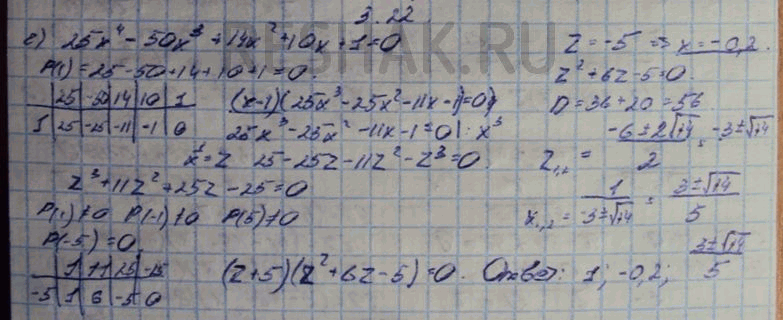 3.22
е) 25x⁴ - 50x³ + 14x² + 10x + 1 = 0
P(1) = 25 - 50 + 14 + 10 + 1 = 0.
25 -50 14 10 1
1 25 -25 -11 -1 0
(x-1)(25x³ - 25x² - 11x - 1) = 0
25x³ - 25x² - 11x - 1 = 0 | : x³
1/x = z 25 - 25z - 11z² - z³ = 0.
z³ + 11z² + 25z - 25 = 0
P(1) ≠ 0 P(-1) ≠ 0 P(5) ≠ 0
P(-5) = 0.
1 11 25 -25
-5 1 6 -5 0
(z+5)(z² + 6z - 5) = 0.
z = -5 => x = -0,2.
z² + 6z - 5 = 0.
D = 36 + 20 = 56
z₁,₂ = (-6 ± 2√14)/2 = -3 ± √14
x₁,₂ = 1/(-3 ± √14) = (3 ± √14)/5
Ответ: 1; -0,2; (3 ± √14)/5
RESHAK.RU